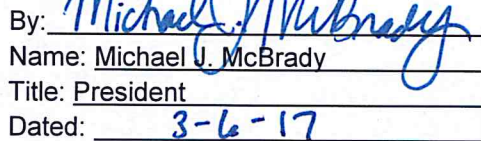 By: Michael J. McBrady
Name: Michael J. McBrady
Title: President
Dated: 3-6-17